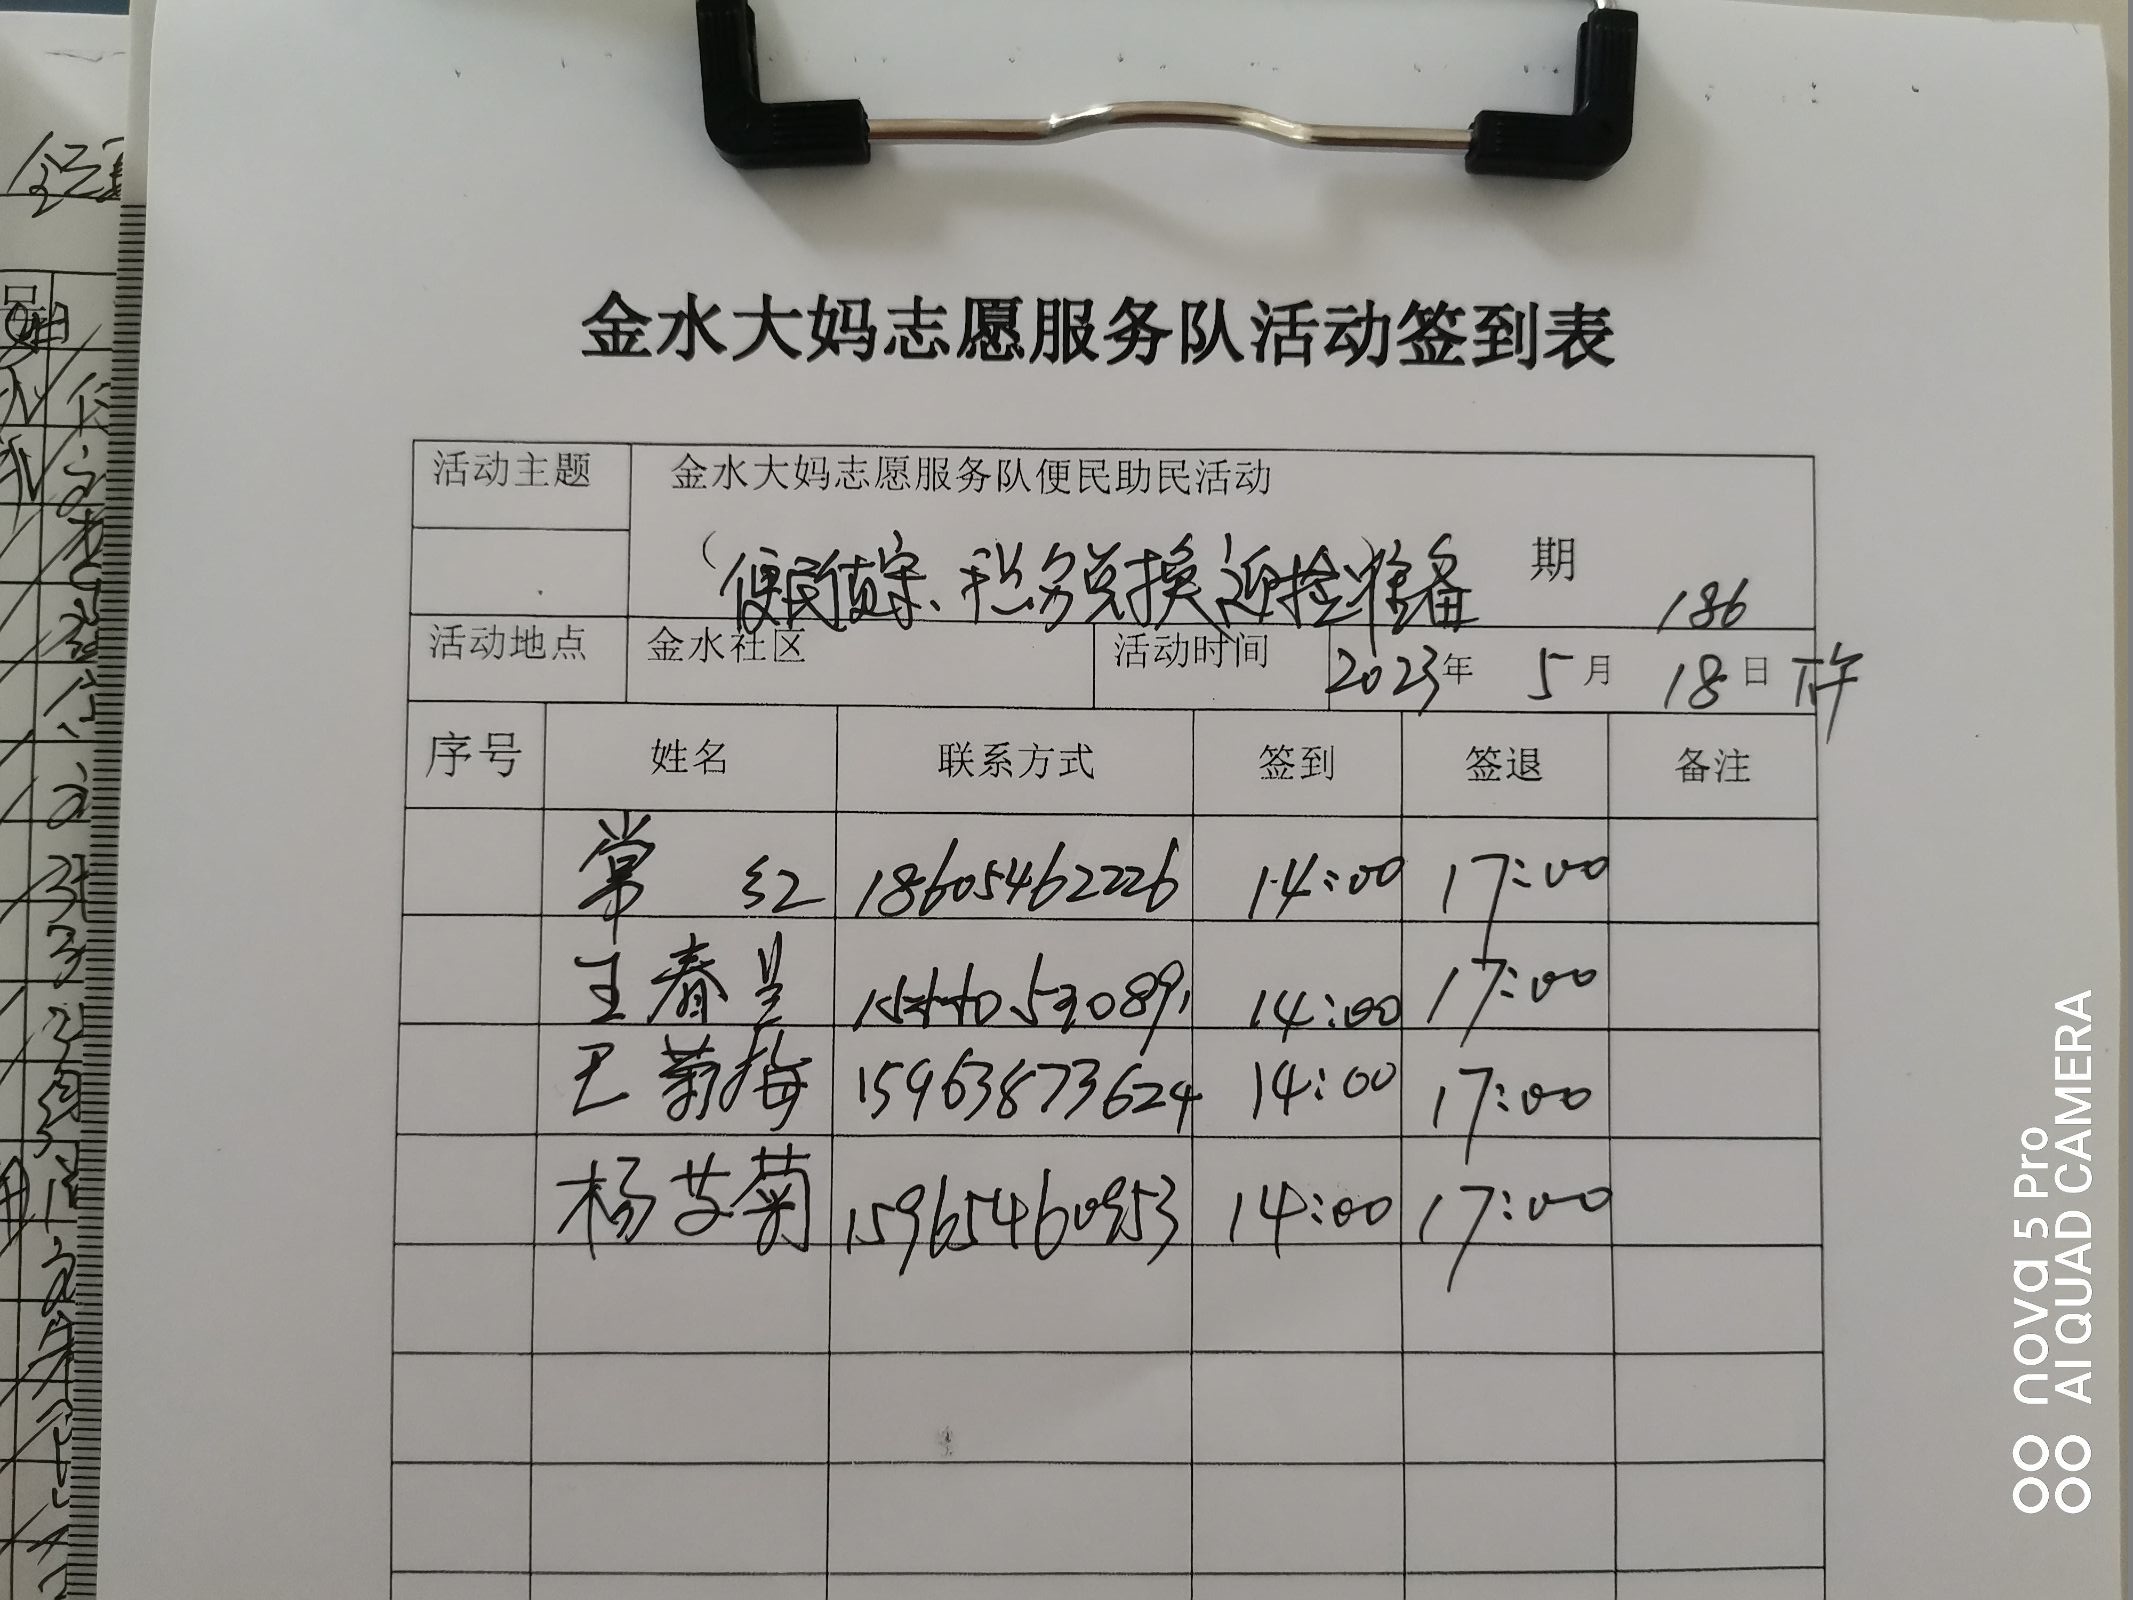 金水大妈志愿服务队活动签到表
活动主题 金水大妈志愿服务队便民助民活动
（便民侦察、积分兑换迎检准备） 期 186
活动地点 金水社区 活动时间 2023年 5月 18日 下午
序号 姓名 联系方式 签到 签退 备注
常 红 18605462226 14:00 17:00
王春 14:00 17:00
巴菊梅 15963873624 14:00 17:00
杨艾菊 15965460953 14:00 17:00
nova 5 Pro
AI QUAD CAMERA